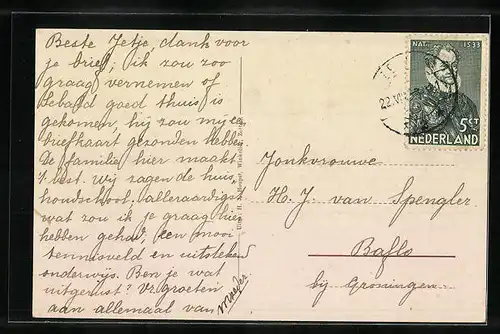 Beste Jetje, dank voor
je brief; ik zou zoo
graag vernemen of
goed thuis is
gekomen, hij zou mij een
briefkaart gezonden hebben
De familie hier maakt
't best. wij zagen de huis
houdschool; allerraardigst
wat zou ik je graag hier
hebben gehad, een mooi
tennisveld en uitstekend
onderwijs. Ben je wat
uitgerust? Vr. groeten
aan allemaal van
Moeder
Jonkvrouwe
H. J. van Spengler
Baflo
bij Groningen
NAT. 1533
5CT
NEDERLAND
22.VI